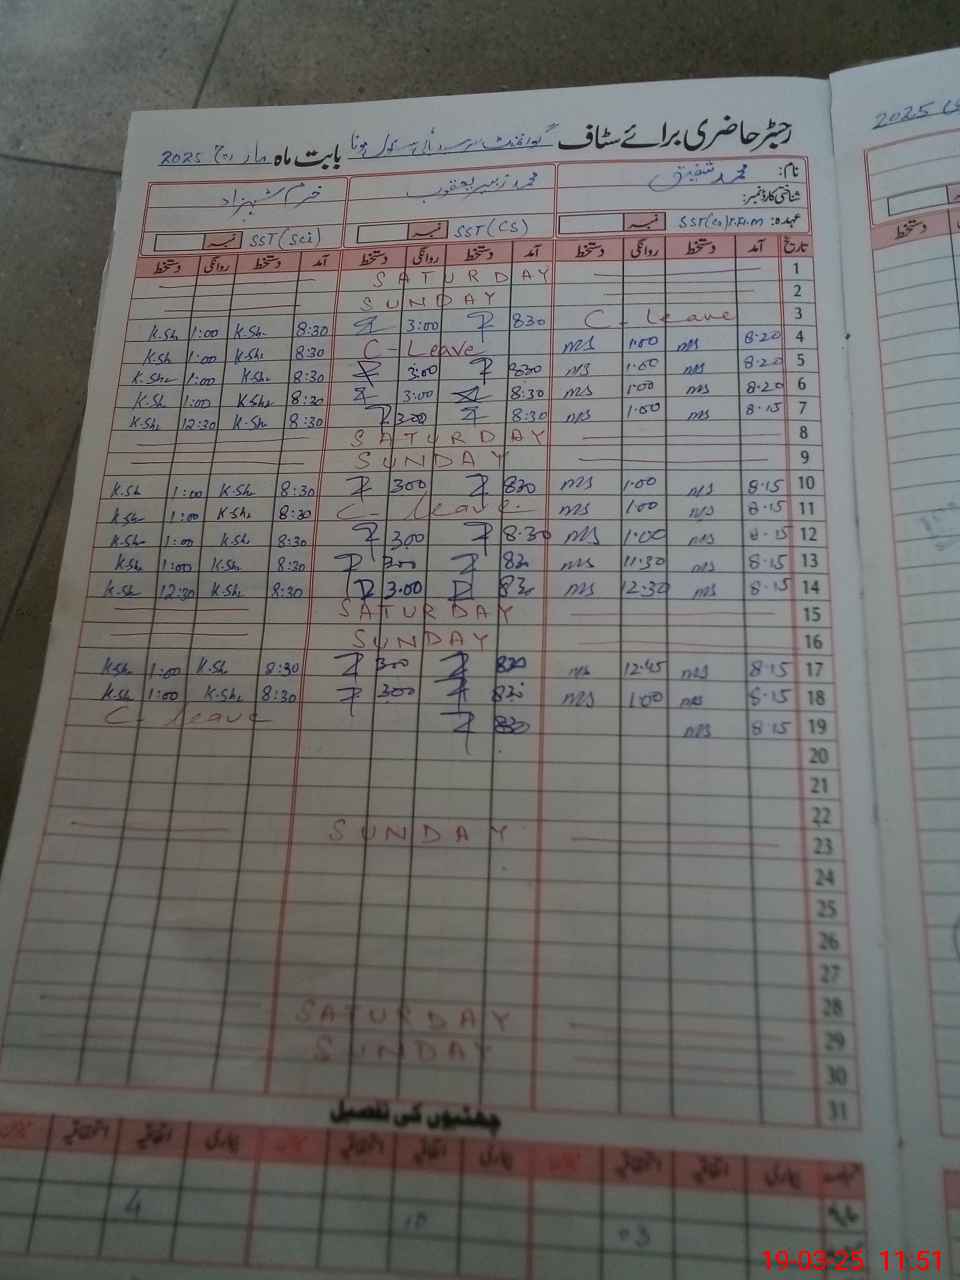 رجسٹر حاضری برائے سٹاف گورنمنٹ بابت ماہ مارچ 2025
نام: محمد شفیق محمد زبیر یعقوب خرم شہزاد
شناختی کارڈ نمبر:
عہدہ: نمبر SST (CS) نمبر SST (Sci) نمبر
تاریخ آمد دستخط روانگی دستخط آمد دستخط روانگی دستخط آمد دستخط روانگی دستخط
SATURDAY 1
SUNDAY 2
K.Sh 1:00 K.Sh 8:30 3:00 830 C-Leave 3
K.Sh 1:00 K.Sh 8:30 C-Leave MS 1.00 MS 8.20 4
K.Sh 1:00 K.Sh 8:30 3:00 830 MS 1.00 MS 8.20 5
K.Sh 1:00 K.Sh 8:30 3:00 8:30 MS 1.00 MS 8.20 6
K.Sh 12:30 K.Sh 8:30 3:00 8:30 MS 1.00 MS 8.15 7
SATURDAY 8
SUNDAY 9
K.Sh 1:00 K.Sh 8:30 300 830 MS 1.00 MS 8.15 10
K.Sh 1:00 K.Sh 8:30 C-Leave MS 1.00 MS 8.15 11
K.Sh 1:00 K.Sh 8:30 3.00 8.30 MS 1.00 MS 8.15 12
K.Sh 1:00 K.Sh 8:30 300 830 MS 11.30 MS 8.15 13
K.Sh 12:30 K.Sh 8:30 3.00 830 MS 12.30 MS 8.15 14
SATURDAY 15
SUNDAY 16
K.Sh 1:00 K.Sh 8:30 300 830 MS 12.45 MS 8.15 17
K.Sh 1:00 K.Sh 8:30 300 830 MS 1.00 MS 8.15 18
C-Leave 830 MS 8.15 19
20
21
22
SUNDAY 23
24
25
26
27
28
SATURDAY 29
SUNDAY 30
31
چھٹیوں کی تفصیل
4 10 03
2025
دستخط
19-03-25 11:51